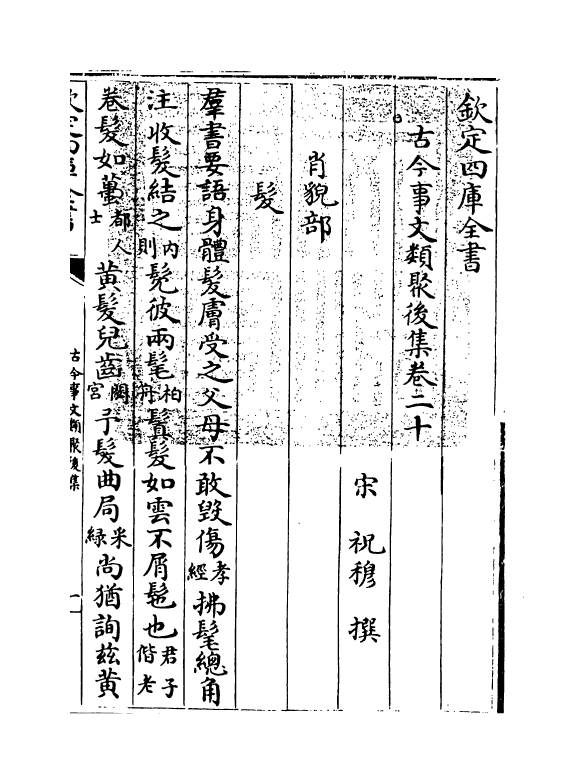 欽定四庫全書
古今事文類聚後集卷二十
宋 祝穆 撰
肖貌部
髮
羣書要語身體髮膚受之父母不敢毀傷孝經拂髦總角
注收髮結之内則髧彼兩髦柏舟鬒髮如雲不屑髢也君子偕老
卷髮如蠆都人士黄髮兒齒閟宮予髮曲局采緑尚猶詢兹黄
古今事文類聚後集
一